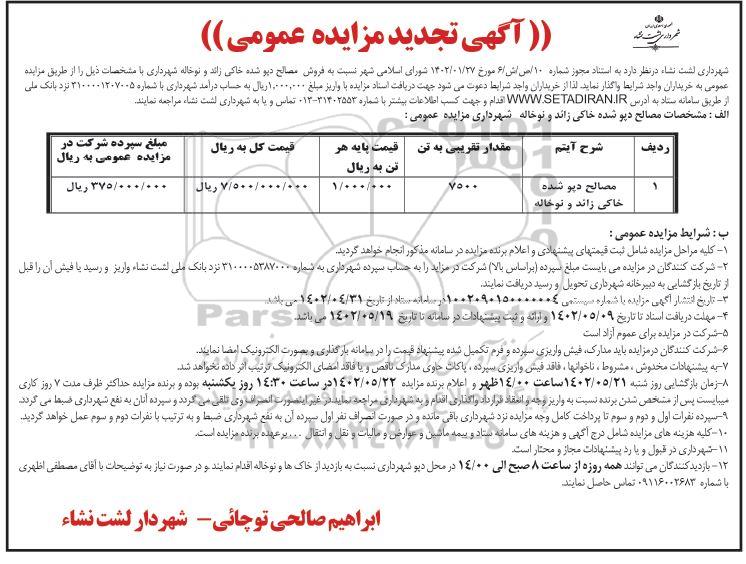 (( آگهی تجدید مزایده عمومی ))
شهرداری لشت نشاء
شهرداری لشت نشاء درنظر دارد به استناد مجوز شماره ۱۰/ض/ش/۶ مورخ ۱۴۰۲/۰۱/۲۷ شورای اسلامی شهر نسبت به فروش مصالح دپو شده خاکی زائد و نوخاله شهرداری با مشخصات ذیل را از طریق مزایده
عمومی به خریداران واجد شرایط واگذار نماید. لذا از خریداران واجد شرایط دعوت می شود جهت دریافت اسناد مزایده با واریز مبلغ ۱,۰۰۰,۰۰۰ریال به حساب درآمد شهرداری با شماره ۳۱۰۰۰۰۱۲۰۷۰۰۵ نزد بانک ملی
از طریق سامانه ستاد به آدرس WWW.SETADIRAN.IR اقدام و جهت کسب اطلاعات بیشتر با شماره ۳۱۴۰۲۵۵۳-۰۱۳ تماس و یا به شهرداری لشت نشاء مراجعه نمایند.
الف : مشخصات مصالح دپو شده خاکی زائد و نوخاله شهرداری مزایده عمومی :
ردیف شرح آیتم مقدار تقریبی به تن قیمت پایه هر تن به ریال قیمت کل به ریال مبلغ سپرده شرکت در مزایده عمومی به ریال
۱ مصالح دپو شده خاکی زائد و نوخاله ۷۵۰۰ ۱/۰۰۰/۰۰۰ ۷/۵۰۰/۰۰۰/۰۰۰ ریال ۳۷۵/۰۰۰/۰۰۰ ریال
ب : شرایط مزایده عمومی :
۱- کلیه مراحل مزایده شامل ثبت قیمتهای پیشنهادی و اعلام برنده مزایده در سامانه مذکور انجام خواهد گردید.
۲- شرکت کنندگان در مزایده می بایست مبلغ سپرده (براساس بالا) شرکت در مزاید را به حساب سپرده شهرداری به شماره ۳۱۰۰۰۰۵۳۸۷۰۰۰ نزد بانک ملی لشت نشاء واریز و رسید یا فیش آن را قبل
از تاریخ بازگشایی به دبیرخانه شهرداری تحویل و رسید دریافت نمایند.
۳- تاریخ انتشار آگهی مزایده با شماره سیستمی ۱۰۰۲۰۹۰۱۵۰۰۰۰۰۰۴در سامانه ستاد از تاریخ ۱۴۰۲/۰۴/۳۱ می باشد.
۴- مهلت دریافت اسناد تا تاریخ ۱۴۰۲/۰۵/۰۹ و ارائه و ثبت پیشنهادات در سامانه تا تاریخ ۱۴۰۲/۰۵/۱۹ می باشد.
۵-شرکت در مزایده برای عموم آزاد است
۶-شرکت کنندگان درمزایده باید مدارک، فیش واریزی سپرده و فرم تکمیل شده پیشنهاد قیمت را در سامانه بارگذاری و بصورت الکترونیک امضا نمایند.
۷-به پیشنهادات مخدوش ، مشروط ، ناخوانها ، فاقد فیش واریزی سپرده ، پاکات حاوی مدارک ناقص و یا فاقد امضای الکترونیک ترتیب اثر داده نخواهد شد.
۸-زمان بازگشایی روز شنبه ۱۴۰۲/۰۵/۲۱ساعت ۱۴/۰۰ظهر و اعلام برنده مزایده ۱۴۰۲/۰۵/۲۲در ساعت ۱۴:۳۰ روز یکشنبه بوده و برنده مزایده حداکثر ظرف مدت ۷ روز کاری
میبایست پس از مشخص شدن برنده نسبت به واریز وجه و انعقاد قرارداد واگذاری اقدام و به شهرداری مراجعه نماید.در غیر اینصورت انصراف وی تلقی می گردد و سپرده آنان به نفع شهرداری ضبط می گردد.
۹-سپرده نفرات اول و دوم و سوم تا پرداخت کامل وجه مزایده نزد شهرداری باقی مانده و در صورت انصراف نفر اول سپرده آن به نفع شهرداری ضبط و به ترتیب با نفرات دوم و سوم عمل خواهد گردید.
۱۰-کلیه هزینه های مزایده شامل درج آگهی و هزینه های سامانه ستاد و بیمه ماشین و عوارض و مالیات و نقل و انتقال ...برعهده برنده مزایده است.
۱۱-شهرداری در قبول و یا رد پیشنهادات مجاز و مختار است.
۱۲-بازدیدکنندگان می توانند همه روزه از ساعت ۸ صبح الی ۱۴/۰۰ در محل دپو شهرداری نسبت به بازدید از خاک ها و نوخاله اقدام نمایند .و در صورت نیاز به توضیحات با آقای مصطفی اظهری
با شماره ۰۹۱۱۶۰۰۲۶۸۳ تماس حاصل نمایند.
ابراهیم صالحی توچائی- شهردار لشت نشاء